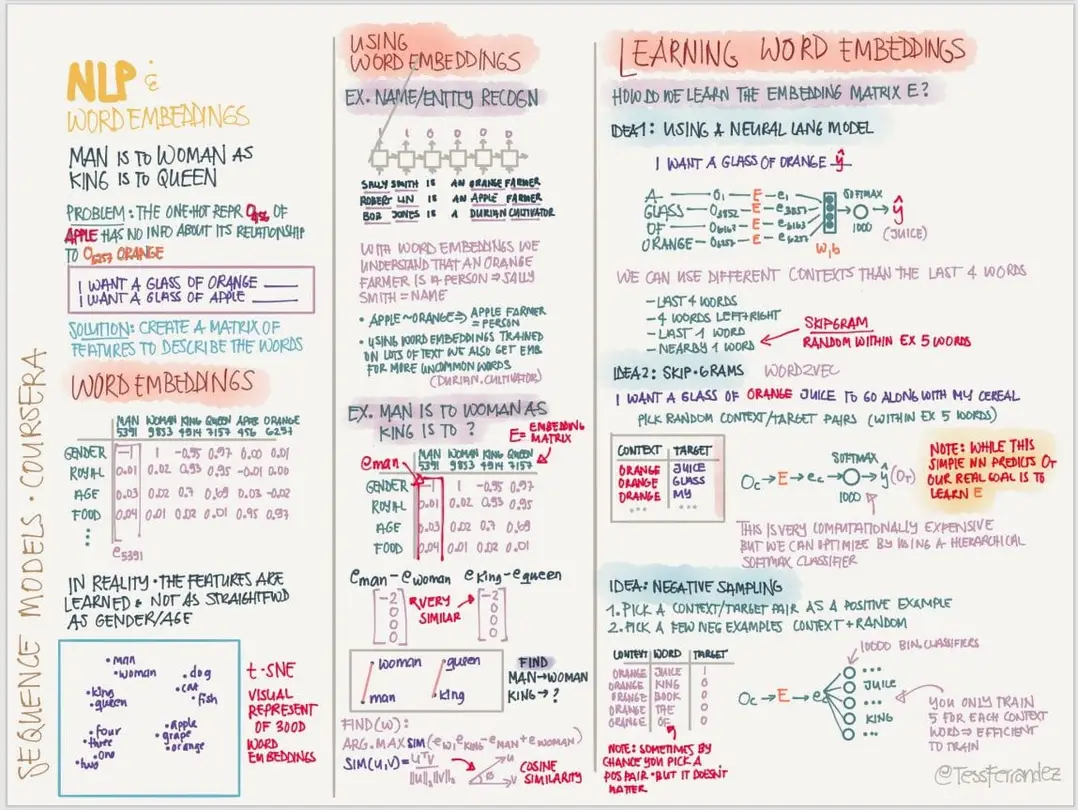 SEQUENCE MODELS · COURSERA
NLP &
WORD EMBEDDINGS
MAN IS TO WOMAN AS
KING IS TO QUEEN
PROBLEM: THE ONE-HOT REPR. O456 OF
APPLE HAS NO INFO ABOUT ITS RELATIONSHIP
TO O6257 ORANGE
I WANT A GLASS OF ORANGE ____
I WANT A GLASS OF APPLE ____
SOLUTION: CREATE A MATRIX OF
FEATURES TO DESCRIBE THE WORDS
WORD EMBEDDINGS
MAN WOMAN KING QUEEN APPLE ORANGE
5391 9853 4914 7157 456 6257
GENDER -1 1 -0.95 0.97 0.00 0.01
ROYAL 0.01 0.02 0.93 0.95 -0.01 0.00
AGE 0.03 0.02 0.7 0.69 0.03 -0.02
FOOD 0.04 0.01 0.02 0.01 0.95 0.97
e5391
IN REALITY · THE FEATURES ARE
LEARNED & NOT AS STRAIGHTFWD
AS GENDER/AGE
man
woman
dog
king
cat
queen
fish
four
Apple
three
grape
one
orange
two
t-SNE
VISUAL
REPRESENT
OF 300D
WORD
EMBEDDINGS
USING
WORD EMBEDDINGS
EX. NAME/ENTITY RECOGN
1 1 0 0 0 0
SALLY SMITH IS AN ORANGE FARMER
ROBERT LIN IS AN APPLE FARMER
BOB JONES IS A DURIAN CULTIVATOR
WITH WORD EMBEDDINGS WE
UNDERSTAND THAT AN ORANGE
FARMER IS A PERSON ⇒ SALLY
SMITH = NAME
• APPLE ~ ORANGE ⇒ APPLE FARMER
= PERSON
• USING WORD EMBEDDINGS TRAINED
ON LOTS OF TEXT WE ALSO GET EMB.
FOR MORE UNCOMMON WORDS
(DURIAN, CULTIVATOR)
EX. MAN IS TO WOMAN AS
KING IS TO ?
E = EMBEDDING
MATRIX
eman
MAN WOMAN KING QUEEN
5391 9853 4914 7157
GENDER -1 1 -0.95 0.97
ROYAL 0.01 0.02 0.93 0.95
AGE 0.03 0.02 0.7 0.69
FOOD 0.04 0.01 0.02 0.01
eman - ewoman eking - equeen
-2 -2
0 0
0 0
0 0
VERY
SIMILAR
woman queen
man king
FIND
MAN → WOMAN
KING → ?
FIND(W):
ARG. MAX SIM(eW, eKING - eMAN + eWOMAN)
SIM(U,V) = UTV
||U||2 ||V||2
u
ø
v
COSINE
SIMILARITY
LEARNING WORD EMBEDDINGS
HOW DO WE LEARN THE EMBEDDING MATRIX E?
IDEA1: USING A NEURAL LANG MODEL
I WANT A GLASS OF ORANGE ŷ
A — O1 — E — e1
GLASS — O3852 — E — e3857
OF — O6163 — E — e6163
ORANGE — O6257 — E — e6257
W, b
SOFTMAX
1000
ŷ
(JUICE)
WE CAN USE DIFFERENT CONTEXTS THAN THE LAST 4 WORDS
- LAST 4 WORDS
- 4 WORDS LEFT+RIGHT
- LAST 1 WORD
- NEARBY 1 WORD
SKIPGRAM
RANDOM WITHIN EX 5 WORDS
IDEA2: SKIP-GRAMS WORD2VEC
I WANT A GLASS OF ORANGE JUICE TO GO ALONG WITH MY CEREAL
PICK RANDOM CONTEXT/TARGET PAIRS (WITHIN EX 5 WORDS)
CONTEXT TARGET
ORANGE JUICE
ORANGE GLASS
ORANGE MY
... ...
Oc → E → ec → ŷ (OT)
SOFTMAX
1000
NOTE: WHILE THIS
SIMPLE NN PREDICTS OT
OUR REAL GOAL IS TO
LEARN E
THIS IS VERY COMPUTATIONALLY EXPENSIVE
BUT WE CAN OPTIMIZE BY USING A HIERARCHICAL
SOFTMAX CLASSIFIER
IDEA: NEGATIVE SAMPLING
1. PICK A CONTEXT/TARGET PAIR AS A POSITIVE EXAMPLE
2. PICK A FEW NEG EXAMPLES CONTEXT + RANDOM
CONTEXT WORD TARGET
ORANGE JUICE 1
ORANGE KING 0
ORANGE BOOK 0
ORANGE THE 0
ORANGE OF 0
NOTE: SOMETIMES BY
CHANCE YOU PICK A
POS PAIR · BUT IT DOESN'T
MATTER
10000 BIN. CLASSIFIERS
Oc → E → ec
...
JUICE
...
KING
...
YOU ONLY TRAIN
5 FOR EACH CONTEXT
WORD ⇒ EFFICIENT
TO TRAIN
@TessFerrandez